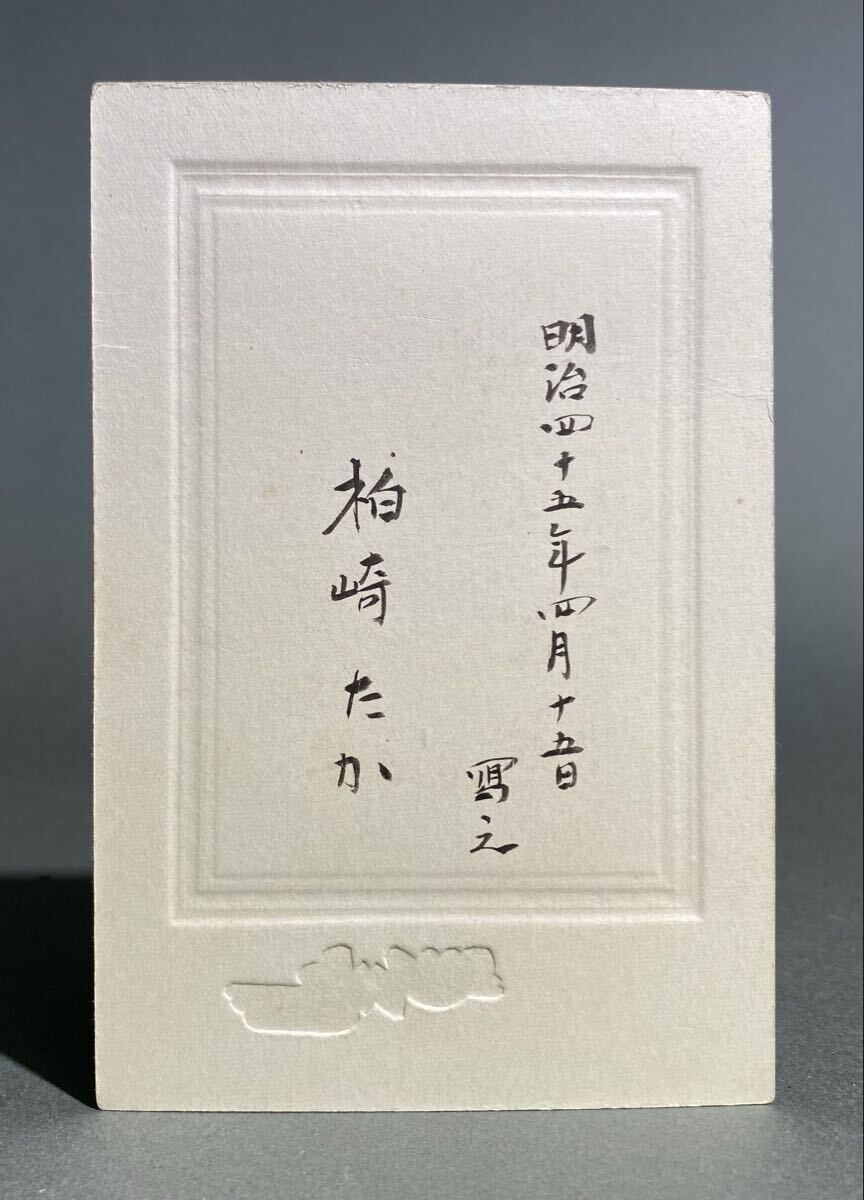 明治四十五年四月十五日
寫之
柏崎たか